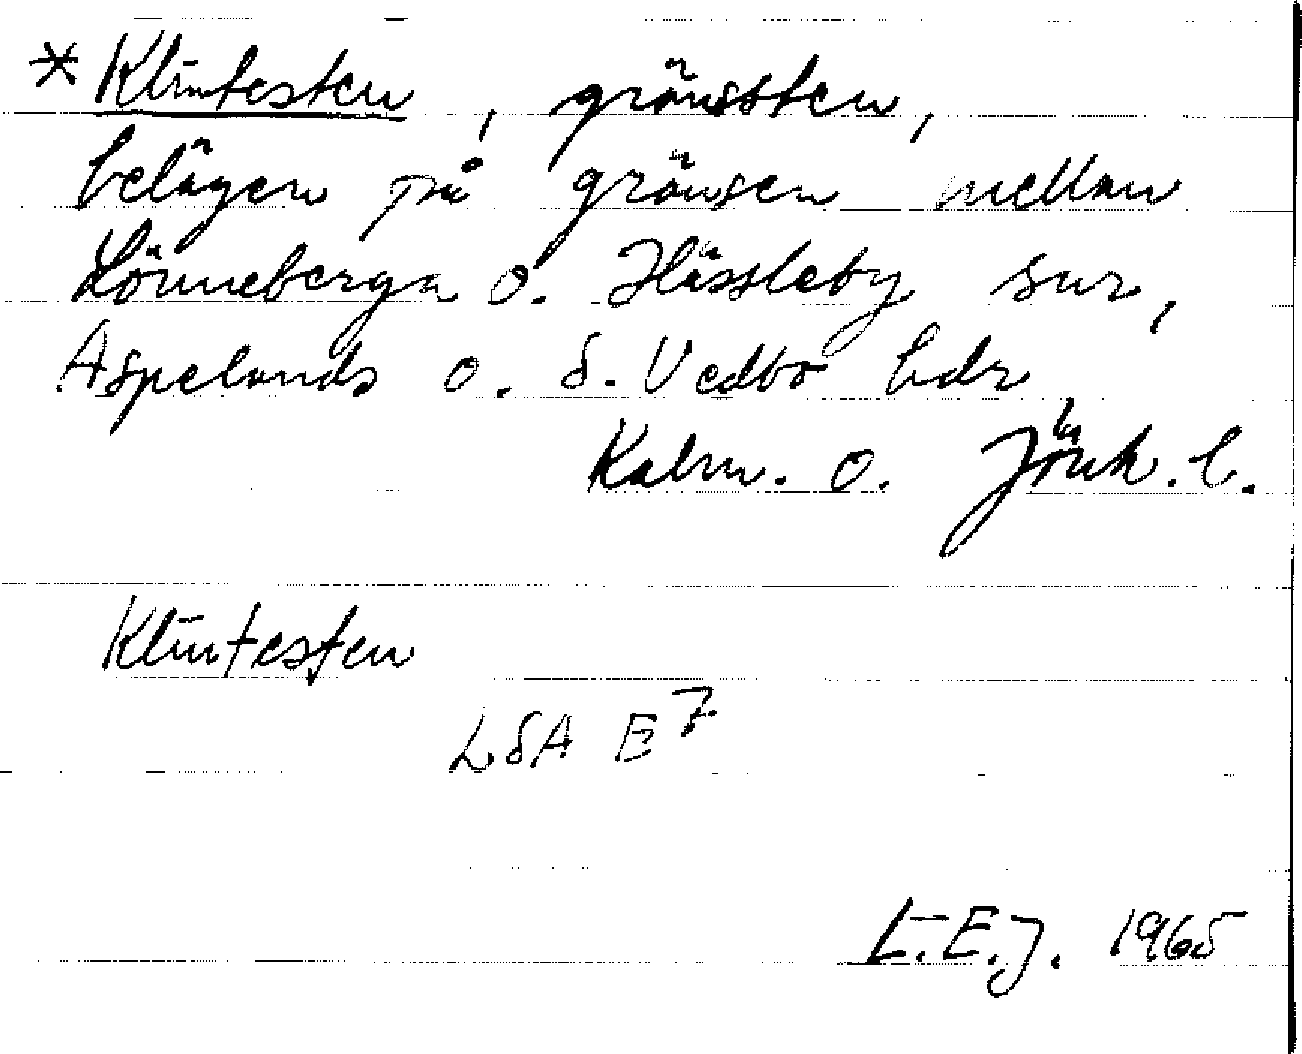 * Klintesten, gränssten,
belägen på gränsen mellan
Lönneberga o. Hässleby snr,
Aspelands o. S. Vedbo hdr
Kalm. o. Jönk. l.
Klintesten
LSA E 7
L.E.J. 1965